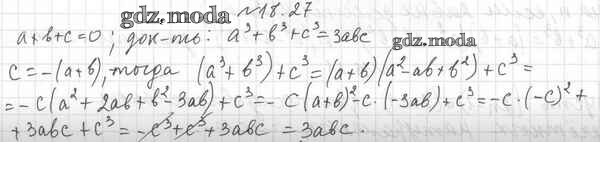 gdz.moda №18.27
a+b+c=0; док-ть: a³+b³+c³=3abc
gdz.moda
c=-(a+b), тогда (a³+b³)+c³=(a+b)(a²-ab+b²)+c³=
=-c(a²+2ab+b²-3ab)+c³=-c(a+b)²-c·(-3ab)+c³=-c·(-c)²+
+3abc+c³=-c³+c³+3abc=3abc.